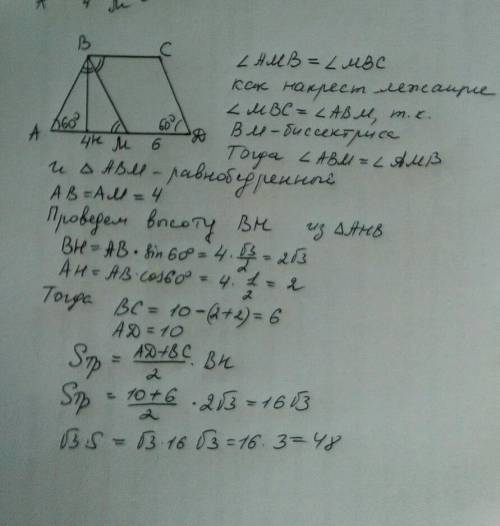 B C
A 60° 4 H M 6 60° D
∠AMB = ∠MBC
как накрест лежащие
∠MBC = ∠ABM, т.к.
BM - биссектриса
Тогда ∠ABM = ∠AMB
и △ABM - равнобедренный
AB = AM = 4
Проведем высоту BH из △AHB
BH = AB · sin 60° = 4 · √3/2 = 2√3
AH = AB · cos 60° = 4 · 1/2 = 2
Тогда
BC = 10 - (2+2) = 6
AD = 10
Sтр = (AD+BC)/2 · BH
Sтр = (10+6)/2 · 2√3 = 16√3
√3·S = √3 · 16√3 = 16 · 3 = 48